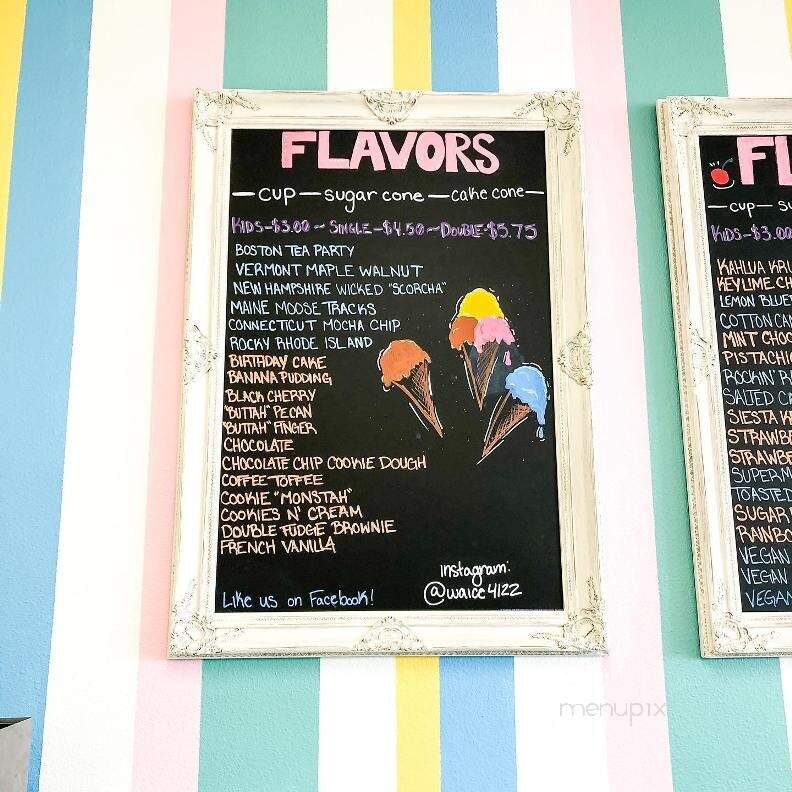 FLAVORS
—CUP—sugar cone—cake cone—
KIDS-$3.00~SINGLE-$4.50~DOUBLE-$5.75
BOSTON TEA PARTY
VERMONT MAPLE WALNUT
NEW HAMPSHIRE WICKED "SCORCHA"
MAINE MOOSE TRACKS
CONNECTICUT MOCHA CHIP
ROCKY RHODE ISLAND
BIRTHDAY CAKE
BANANA PUDDING
BLACK CHERRY
"BUTTAH" PECAN
"BUTTAH" FINGER
CHOCOLATE
CHOCOLATE CHIP COOKIE DOUGH
COFFEE TOFFEE
COOKIE "MONSTAH"
COOKIES N' CREAM
DOUBLE FUDGE BROWNIE
FRENCH VANILLA
Like us on Facebook!
instagram:
@waice4122
FL
—cup—su
KIDS-$3.00
KAHLUA KRU
KEY LIME CH
LEMON BLUE
COTTON CAN
MINT CHOC
PISTACHIO
ROCKIN' R
SALTED CA
SIESTA K
STRAWBE
STRAWBE
SUPERM
TOASTED
SUGAR
RAINBO
VEGAN
VEGAN
VEGAN
menupix